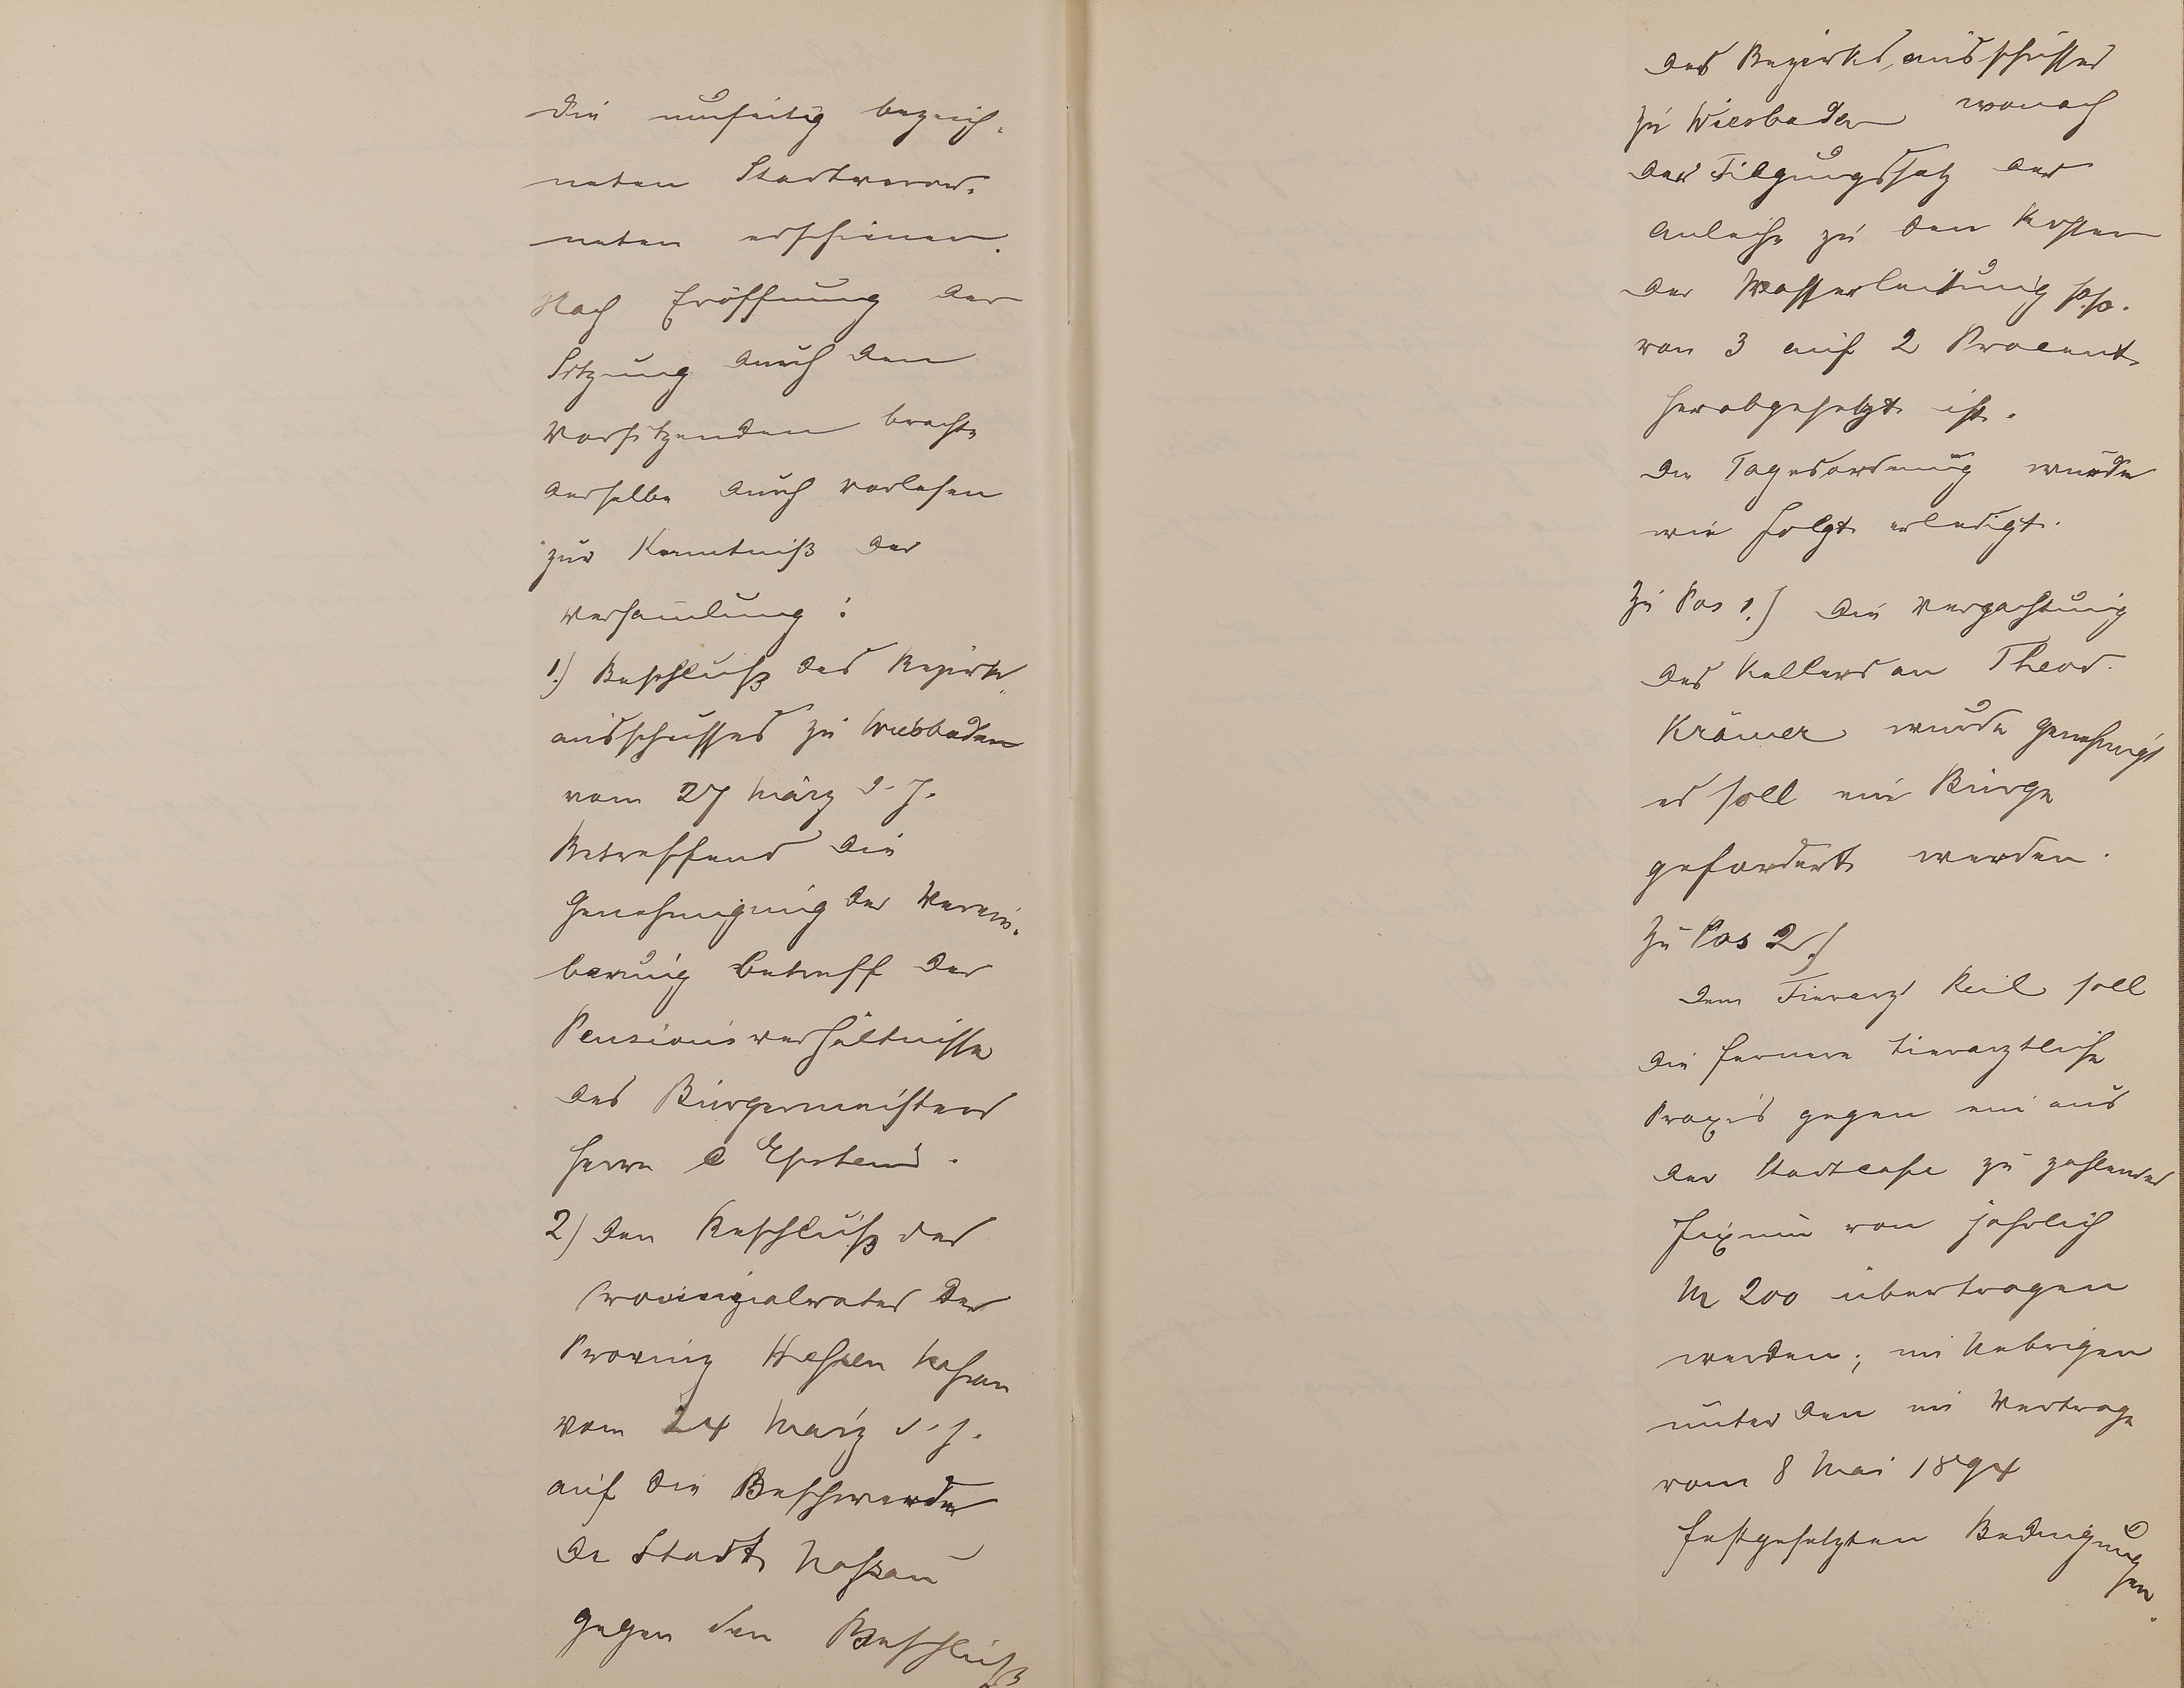 die umseitig bezeich-
neten Stadtverord-
neten erschienen.
Nach Eröffnung der
Sitzung durch den
Vorsitzenden brachte
derselbe durch vorlesen
zur Kenntniß der
Versam̄lung :
1.) Beschluß des Bezirks-
ausschusses zu Wiesbaden
vom 27 März d. J.
Betreffend die
Genehmigung der Verein-
barung betreff der
Pensionsverhältnisse
des Bürgermeisters
Herrn
2) den Beschluß des
Provinzialrates der
Provinz Hessen Nassau
vom 24 März d. J.
auf die Beschwerde
der Stadt Nassau
gegen den Beschluß
des Bezirksausschusses
zu Wiesbaden wonach
der Tilgungssatz der
Anleihe zu den Kosten
der Wasserleitung pp.
von 3 auf 2 Procent
herabgesetzt ist.
Die Tagesordnung wurde
wie folgt erledigt.
Zu Pos 1.) Die Verpachtung
des Kellers an Theod.
Krämer wurde genehmigt
es soll ein Bürge
gefordert werden.
Zu Pos 2.)
Dem Tierarzt Keil soll
die fernere tierarztliche
Praxis gegen ein aus
der Stadtcasse zu zahlendes
Fixum von jährlich
M 200 übertragen
werden; im Uebrigen
unter den im Vertrage
vom 8 Mai 1894
festgesetzten Bedingungen.